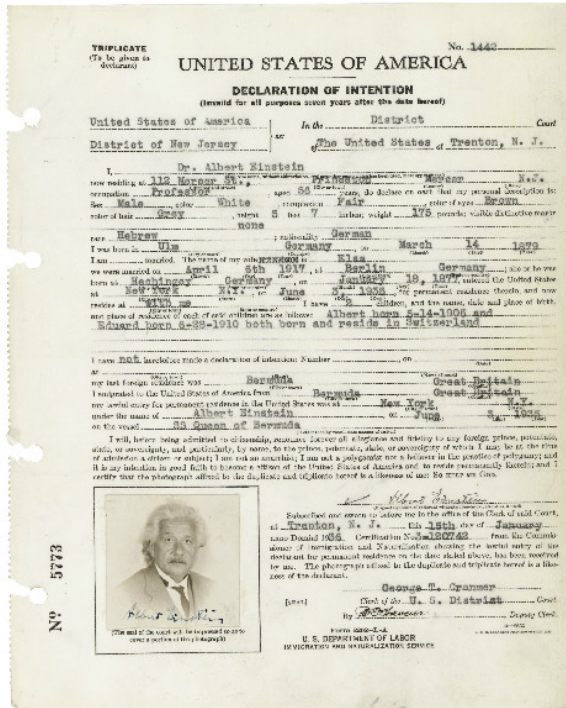 TRIPLICATE
(To be given to declarant)
No. 1442
UNITED STATES OF AMERICA
DECLARATION OF INTENTION
(Invalid for all purposes seven years after the date hereof)
United States of America
In the District Court
District of New Jersey
ss:
of The United States of Trenton, N. J.
I, Dr. Albert Einstein
now residing at 112 Mercer St., Princeton Mercer N.J.
occupation Professor, aged 56 years, do declare on oath that my personal description is:
Sex Male, color White, complexion Fair, color of eyes Brown
color of hair Grey, height 5 feet 7 inches; weight 175 pounds; visible distinctive marks
none
race Hebrew; nationality German
I was born in Ulm Germany, on March 14 1879
I am married. The name of my wife is Elsa
we were married on April 6th 1917, at Berlin Germany; she or he was
born at Hechingen Germany, on January 18, 1877, entered the United States
at New York N.Y., on June 3rd 1935, for permanent residence therein, and now
resides at with me. I have children, and the name, date and place of birth,
and place of residence of each of said children are as follows: Albert born 5-14-1905 and
Eduard born 6-28-1910 both born and reside in Switzerland
I have not heretofore made a declaration of intention: Number on
at
my last foreign residence was Bermuda Great Britain
I emigrated to the United States of America from Bermuda Great Britain
my lawful entry for permanent residence in the United States was at New York N.Y.
under the name of Albert Einstein on June 3, 1935
on the vessel SS Queen of Bermuda
I will, before being admitted to citizenship, renounce forever all allegiance and fidelity to any foreign prince, potentate,
state, or sovereignty, and particularly, by name, to the prince, potentate, state, or sovereignty of which I may be at the time
of admission a citizen or subject; I am not an anarchist; I am not a polygamist nor a believer in the practice of polygamy; and
it is my intention in good faith to become a citizen of the United States of America and to reside permanently therein; and I
certify that the photograph affixed to the duplicate and triplicate hereof is a likeness of me: So help me God.
Albert Einstein
Subscribed and sworn to before me in the office of the Clerk of said Court,
at Trenton, N. J. this 15th day of January
anno Domini 1936. Certification No 3-120742 from the Commis-
sioner of Immigration and Naturalization showing the lawful entry of the
declarant for permanent residence on the date stated above, has been received
by me. The photograph affixed to the duplicate and triplicate hereof is a like-
ness of the declarant.
George T. Cranmer
[SEAL] Clerk of the U. S. District Court.
By Deputy Clerk.
Form 2202-L-A
U. S. DEPARTMENT OF LABOR
IMMIGRATION AND NATURALIZATION SERVICE
No 5773
Albert Einstein.